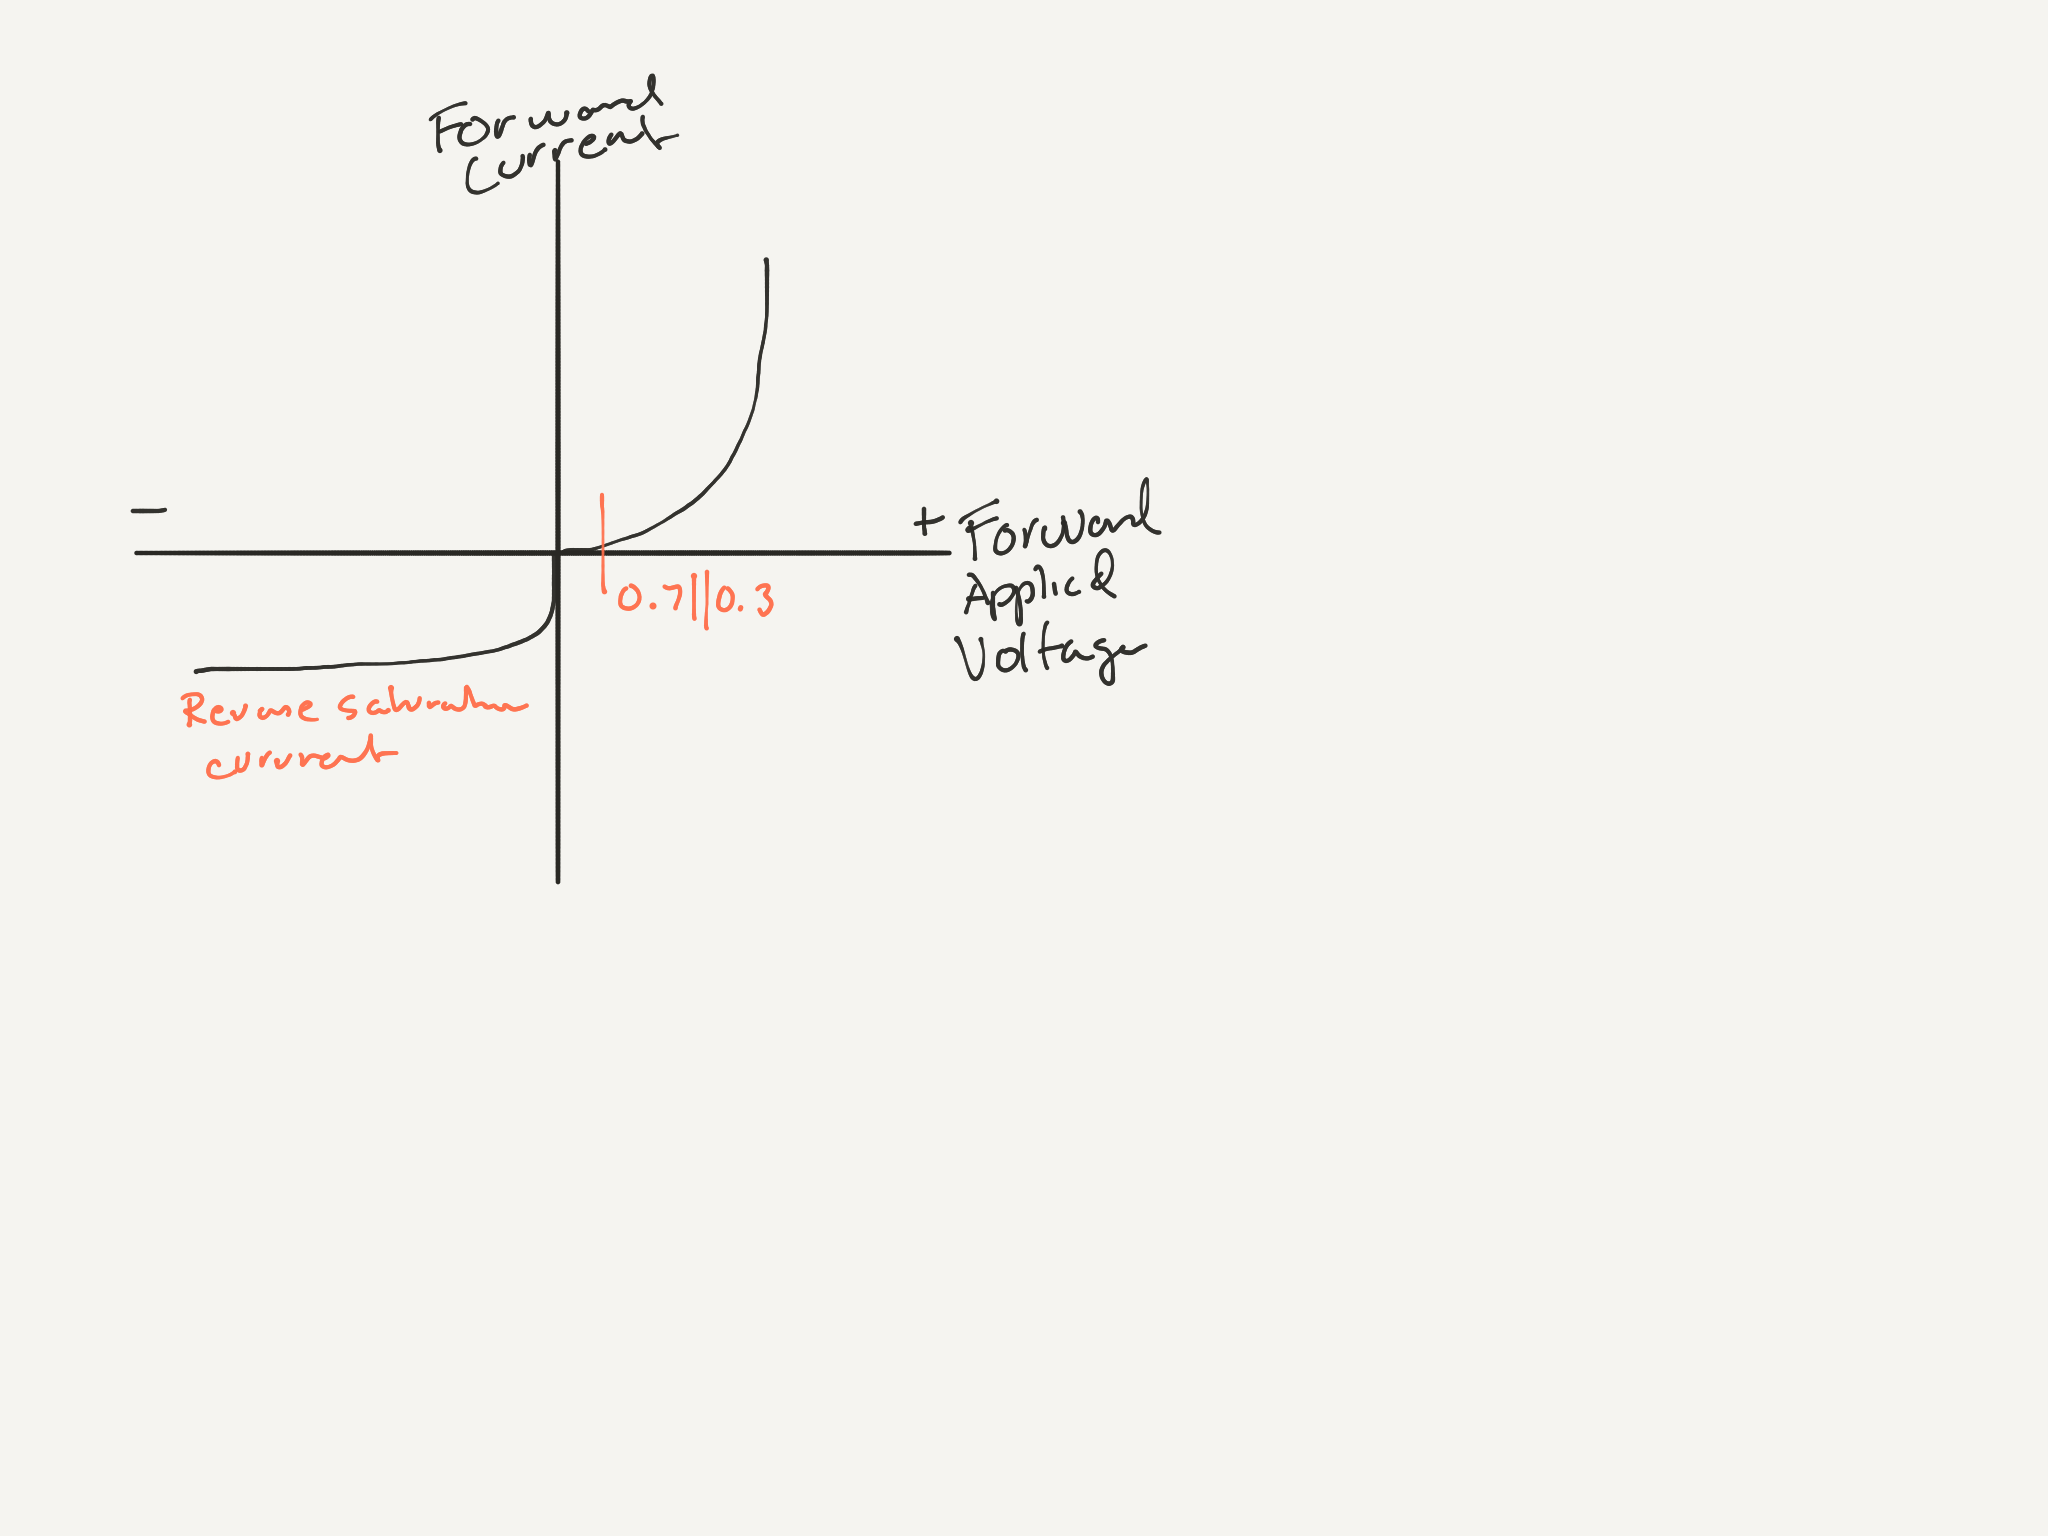 Forward
Current
−
+ Forward
Applied
Voltage
0.7||0.3
Reverse saturation
current